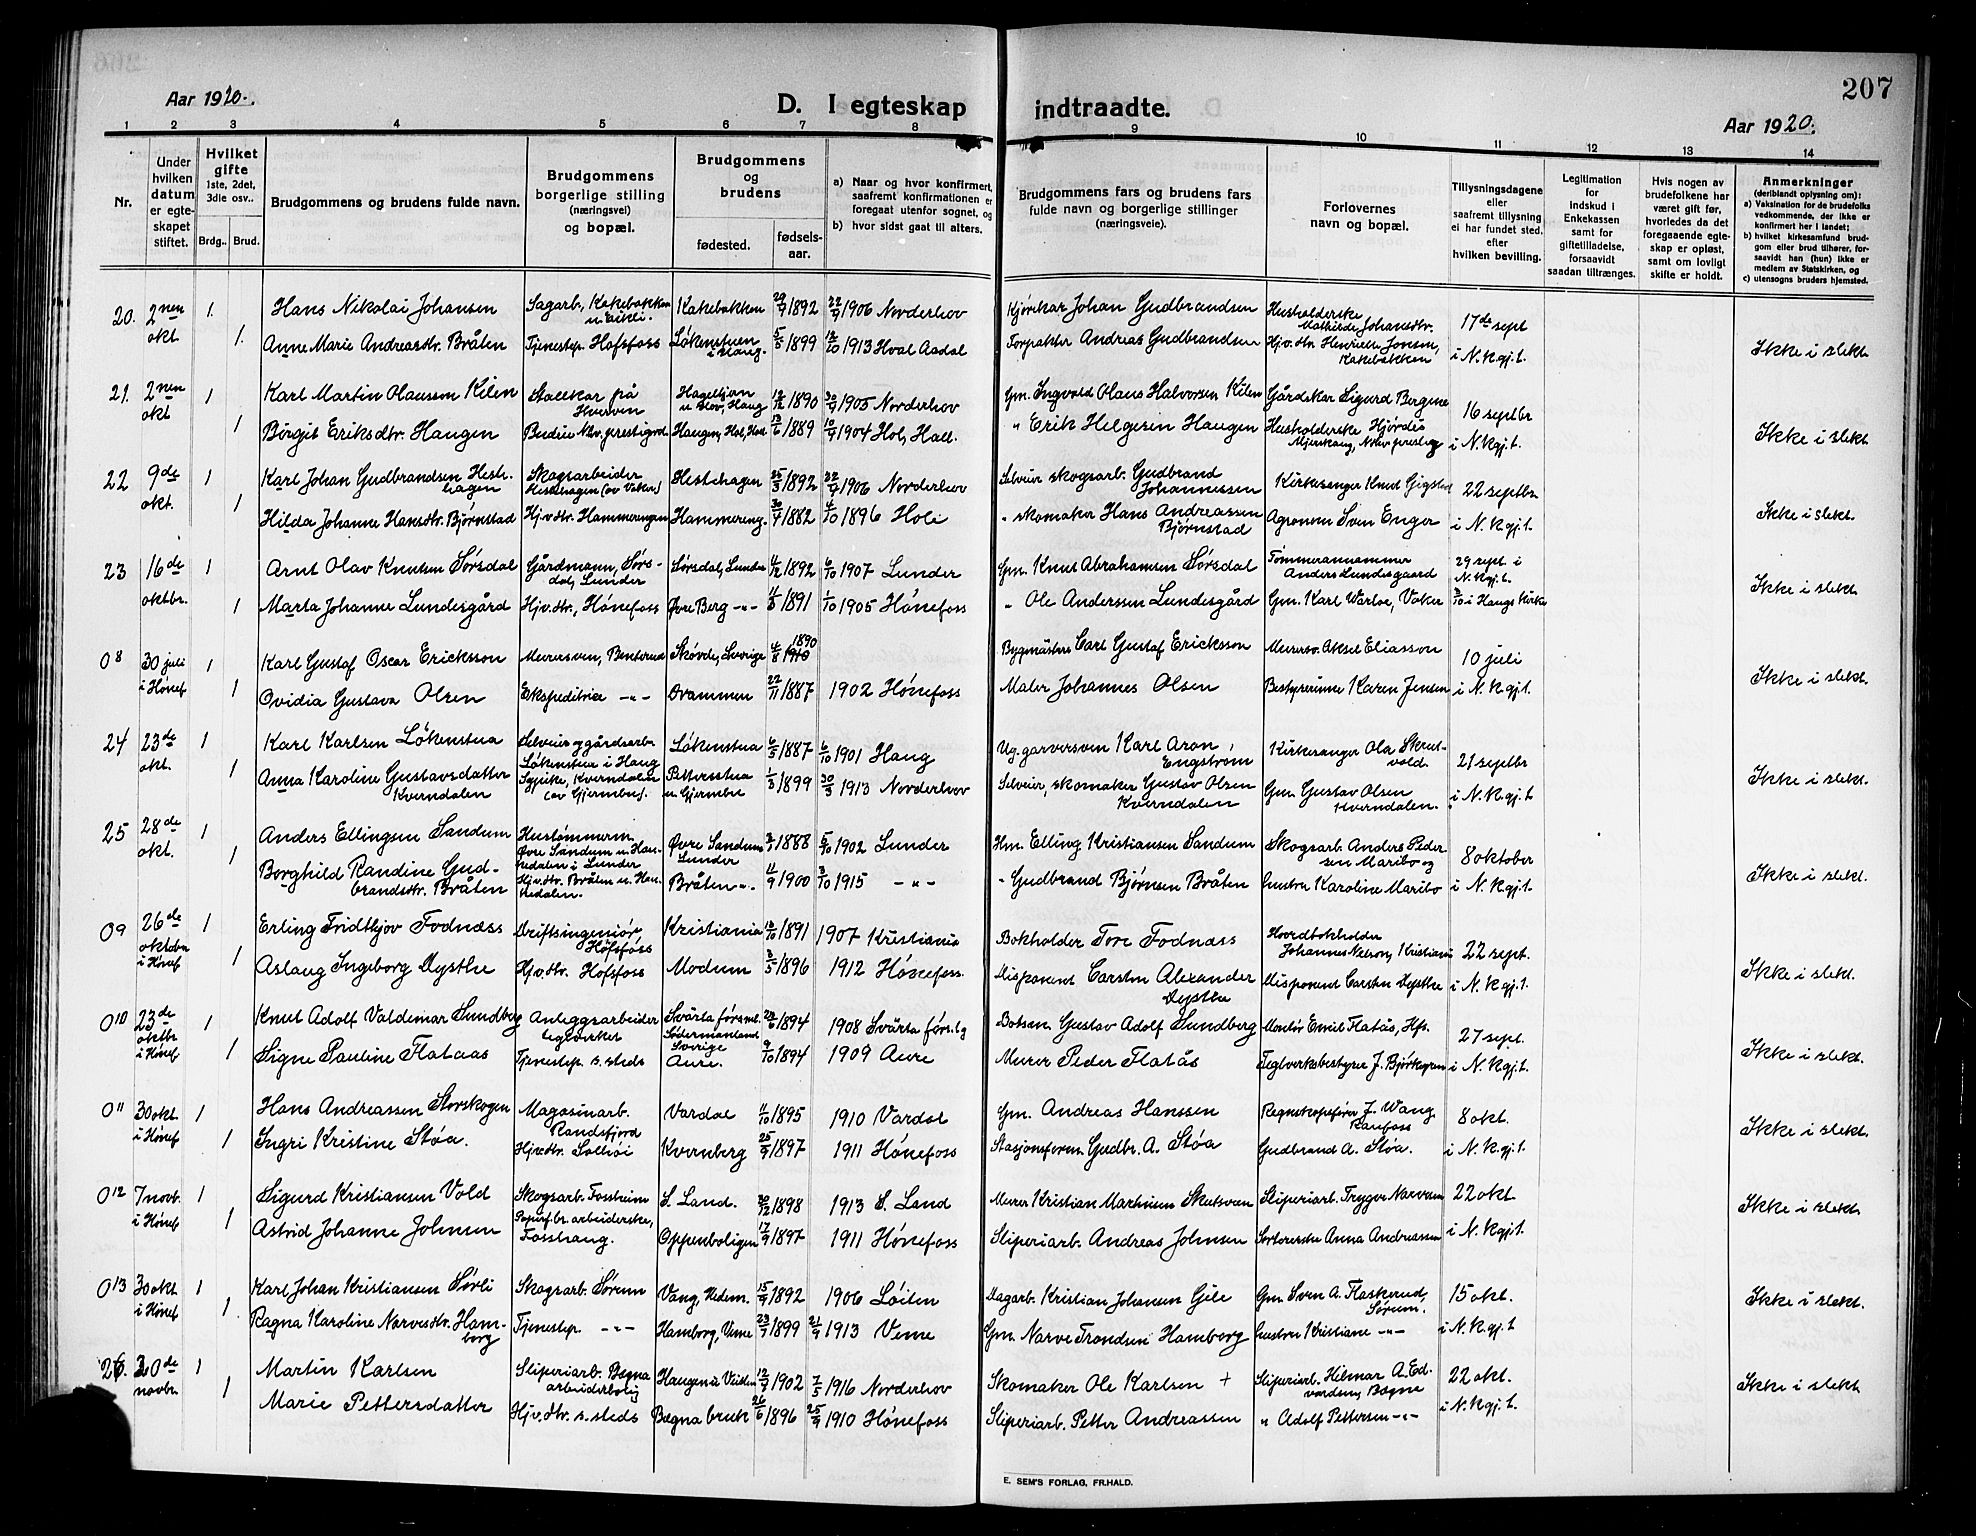 207
Aar 1920.
D. I egteskap indtraadte.
Aar 1920.
1 2 3 4 5 6 7 8 9 10 11 12 13 14
Nr.
Under hvilken datum er egteskapet stiftet.
Hvilket gifte 1ste, 2det, 3die osv..
Brdg.. Brud.
Brudgommens og brudens fulde navn.
Brudgommens borgerlige stilling (næringsvei) og bopæl.
Brudgommens og brudens
fødested.
fødselsaar.
a) Naar og hvor konfirmert, saafremt konfirmationen er foregaat utenfor sognet, og
b) hvor sidst gaat til alters.
Brudgommens fars og brudens fars fulde navn og borgerlige stillinger (næringsveie).
Forlovernes navn og bopæl.
Tillysningsdagene eller saafremt tillysning ei har fundet sted, efter hvilken bevilling.
Legitimation for indskud i Enkekassen samt for giftetilladelse, forsaavidt saadan tiltrænges.
Hvis nogen av brudefolkene har været gift før, hvorledes da det foregaaende egteskap er opløst, samt om lovligt skifte er holdt.
Anmerkninger (deriblandt oplysning om):
a) Vaksination for de brudefolks vedkommende, der ikke er konfirmert her i landet;
b) hvilket kirkesamfund brudgom eller brud tilhører, forsaavidt han (hun) ikke er medlem av Statskirken, og
c) utensogns bruders hjemsted.
20. 2nen okt 1. Hans Nikolai Johansen Sagarb., Kakebakken u. Eikli. Kakebakken 29/9 1892 22/9 1906 Norderhov Kjørekar Johan Gudbrandsen Husholderske Mathilde Johansdtr. 17de sept
1. Anne Marie Andreasdtr. Bråten Tjenestep. Hofsfoss Løkenstuen i Haug. 5/5 1899 12/10 1913 Hval Aadal Forpakter Andreas Gudbrandsen Hj.v.dtr. Henriette Jonsen, Kakebakken i N.kgj.l. Ikke i slekt
21. 2nen okt 1 Karl Martin Olausson Kilen Stallkar på Hvervin 12/12 1890 30/9 1905 Norderhov Gm. Ingvald Olaus Halvorsen Kilen Gårdskar Sigurd Bergene 16 septbr
1 Børgit Eriksdtr. Haugen Haugen, Hol, Hall. 13/6 1889 10/9 1904 Hol, Hall. " Erik Helgesen Haugen Husholderske Hjørdis i N.kgj.l. Ikke i slekt
22 9de okt. 1 Karl Johan Gudbrandsen Hesthagen Skogsarbeider Hesthagen (ov Viker) Hesthagen 25/3 1892 1906 Norderhov Selveier skogsarb. Gudbrand Johannessen Kirkesanger Knut Gigstad 22 septbr
1 Hilda Johanne Hansdtr. Bjørnstad Hj.v.dtr. Hammerengen Hammereng. 30/4 1882 4/10 1896 Hole " skomaker Hans Andreassen Bjørnstad Agronom Sven Enger i N.kgj.l. Ikke i slekt.
23 16de oktbr. 1 Arnt Olav Knutsen Sørsdal Gårdmann, Sørsdal, Lunder Sørsdal, Lunder 4/12 1892 6/10 1907 Lunder Gm. Knut Abrahamsen Sørsdal Tømmerannammer Anders Lundesgaard 29 sept i N.kgj.l.
1 Marta Johanne Lundesgård Hj.v.dtr., Hønefoss Øvre Berg -"- 1891 1/10 1905 Hønefoss " Ole Anderssen Lundesgård Gm. Karl Warloe, Vaker 3/10 i Haugs kirke Ikke i slekt
08 30 juli i Hønef 1 Karl Gustaf Oscar Ericksson Murersven, Benterud Skövde, Sverige 4/8 1910 1890 Bygmäster Carl Gustaf Ericksson Murersv. Aksel Eliasson 10 juli
1 Ovidia Gustava Olsen Ekspeditrice -"- Drammen 22/11 1887 1902 Hønefoss Maler Johannes Olsen Bestyrerinne Karen Jensen i N.kgj.l. Ikke i slekt.
24 23de okt. 1 Karl Karlsen Løkenstua Selveier og gårdsarb. Løkenstua i Haug Løkenstua 6/5 1887 6/10 1901 Haug Ug. garversven Karl Aron Engstrøm Kirkesanger Ola Skrutvold 21 septbr
1 Anna Karoline Gustavsdatter Kverndalen Sypike, Kverndalen (ov Gjermbu). Pettersstua u Gjermbu 1/3 1899 30/3 1913 Norderhov Selveier, skomaker Gustav Olsen Kverndalen Gm. Gustav Olsen Kverndalen. i N.kgj.l. Ikke i slekt
25 28de okt. 1 Anders Ellingsen Sandum Hustømmerm. Øvre Sandum u. Haugedalen i Lunder Øvre Sandum Lunder 1888 5/10 1902 Lunder Hm. Elling Kristiansen Sandum Skogsarb. Anders Pedersen Maribo og 8 oktober
1 Borghild Randine Gudbrandsdtr. Bråten Hj.v.dtr. Bråten u. Haugedalen. Bråten -"- 11/9 1900 3/10 1915 -"- " Gudbrand Bjørnsen Bråten hustru Karoline Maribo i N.kgj.l. Ikke i slekt.
09 26de oktober i Hønef 1 Erling Fridthjov Fodnæss Driftsingeniør, Hofsfoss Kristiania 1891 1907 Kristiania Bokholder Tore Fodnæss Hovedbokholder Johannes Nelson, Kristiania 22 sept.
1 Aslaug Ingeborg Dysthe Hj.v.dtr. Hofsfoss Modum 3/5 1896 1912 Hønefoss. Disponent Carsten Alexander Dysthe Disponent Carsten Dysthe i N.kgj.l. Ikke i slekt.
010 23de oktbr i Hønef 1 Knut Adolf Valdemar Sundberg Anleggsarbeider teglverket Svärta förs.ml. Södermanland Sverige 1894 1908 Svärta förs.lg Botsm. Gustav Adolf Sundberg Montør Emil Flatås, Hfs. 27 sept.
1 Signe Pauline Flataas Tjenestep. s. steds Aure. 9/10 1894 1909 Aure Murer Peder Flatås Teglverksbestyrer J. Bjørkgren i N.kgj.l. Ikke i slekt.
011 30 okt. i Hønef 1 Hans Andreassen Storskogen Magasinarb. Randsfjord Vardal 11/10 1895 1910 Vardal Gm. Andreas Hanssen Regnskapsfører J. Wang, Raufoss 8 okt.
1 Ingri Kristine Støa. Hj.v.dtr. Solliøi Kvernberg 25/9 1897 1911 Hønefoss Stasjonsform. Gudbr. A. Støa Gudbrand A. Støa. i N.kgj.l. Ikke i slekt.
012 7 novb. i Hønef 1 Sigurd Kristiansen Vold Skogsarb. Fossheim S. Land. 20/12 1898 1913 S. Land Murer Kristian Martinius Skutsveen Sliperiarb. Trygve Narvesen 22 okt.
1 Astrid Johanne Johnsen Papirfbr. arbeiderske, Fosshaug. Oppenboligen 17/9 1897 1911 Hønefoss Sliperiarb. Andreas Johnsen Sorterske Anna Andreassen i N.kgj.l. Ikke i slekt.
013 30 okt i Hønef 1 Karl Johan Kristiansen Sørli Skogsarb. Sørum Vang, Hedem. 15/9 1892 1906 Löiten Dagarb. Kristian Johansen Gjile Gm. Sven A. Flaskerud, Sørum. 15 okt.
1. Ragna Karoline Narvesdtr. Hamborg Tjenestep. -"- Hamborg, Veme 23/7 1899 21/9 1913 Veme Gm. Narve Trondsen Hamborg hustru Kristiane -"- i N.kgj.l. Ikke i slekt.
26. 20de novbr. 1 Martin Karlsen Sliperiarb. Bægna arbeiderbolig Haugen u. Veiden 12/9 1902 7/5 1916 Norderhov Skomaker Ole Karlsen + Sliperiarb. Hilmar A. Edvardsen, Bægna 22 okt.
1 Marie Pettersdatter Hj.v.dtr. s. steds Bægna bruk 26/6 1896 25/9 1910 Hønefoss Sliperiarb. Petter Andreassen " Adolf Pettersen -"- i N.kgj.l. Ikke i slekt.
E. SEM'S FORLAG, FR.HALD.